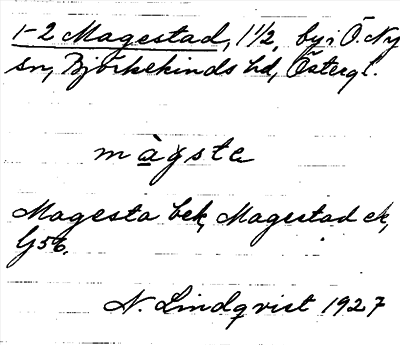 1-2 Magestad, 1 1/2, by i Ö. Ny
sn, Björkekinds hd, Östergl.
màgste
Magesta bek, Magestad ek,
G56.
N. Lindqvist 1927